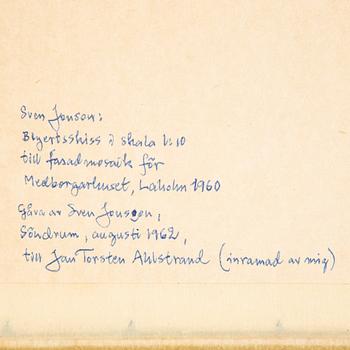 Sven Jonson:
Bygertsskiss i skala 1:10
till fasadmosaik för
Medborgarhuset, Laholm 1960
Gåva av Sven Jonsson,
Söndrum, augusti 1962,
till Jan Torsten Ahlstrand (inramad av mig)